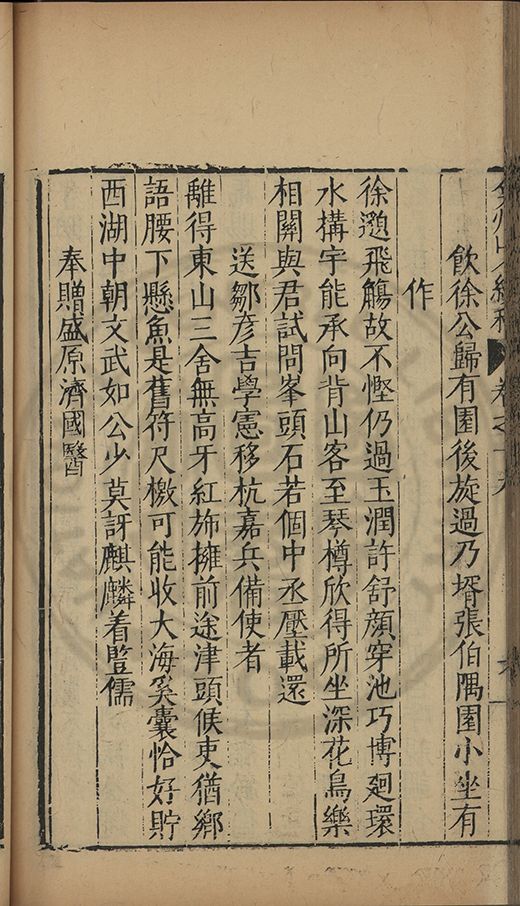 飲徐公歸有園後旋過乃壻張伯隅園小坐有
作
徐邀飛觴故不慳仍過玉潤許舒顏穿池巧博迴環
水搆宇能承向背山客至琴樽欣得所坐深花鳥樂
相關與君試問峯頭石若個中丞壓載還
送鄒彥吉學憲移杭嘉兵備使者
雖得東山三舍無高牙紅斾擁前途津頭候吏猶鄉
語腰下懸魚是舊符尺檄可能收大海奚囊恰好貯
西湖中朝文武如公少莫訝麒麟着竪儒
奉贈盛原濟國醫